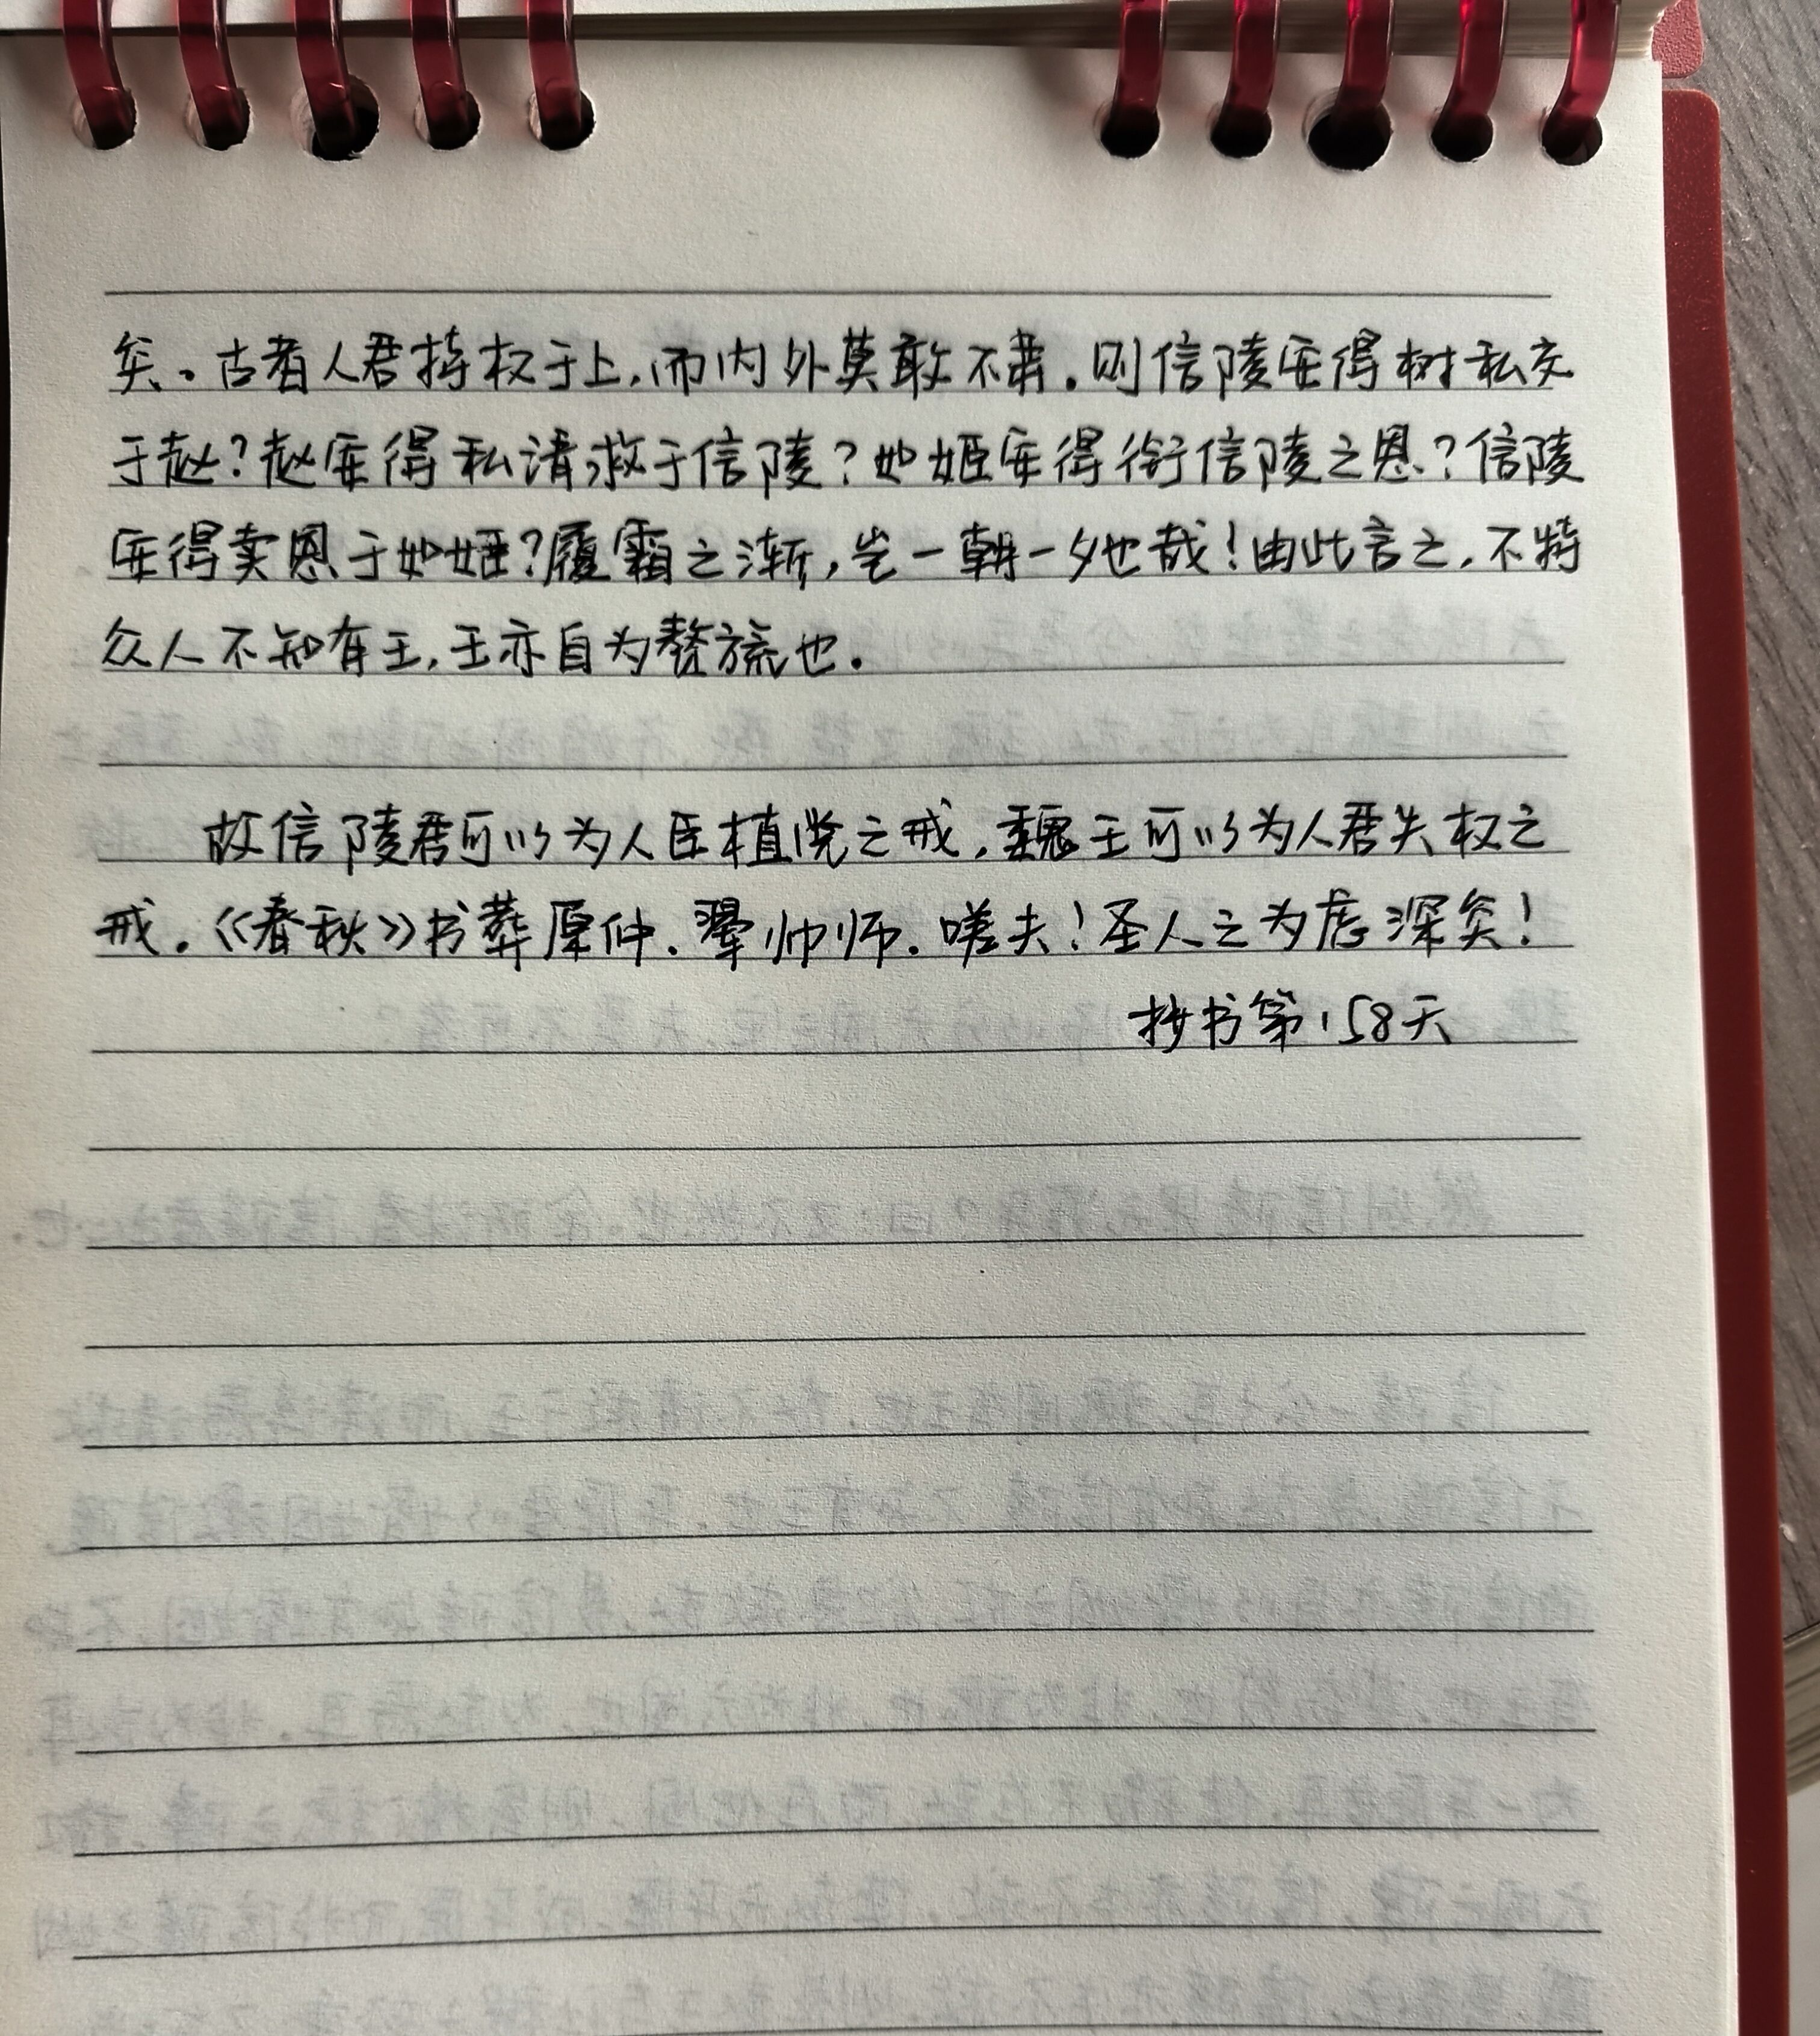 矣。古者人君持权于上,而内外莫敢不肃。则信陵安得树私交
于赵?赵安得私请救于信陵?如姬安得衔信陵之恩?信陵
安得卖恩于如姬?履霜之渐,岂一朝一夕也哉!由此言之,不特
众人不知有王,王亦自为赘旒也。
故信陵君可以为人臣植党之戒,魏王可以为人君失权之
戒。《春秋》书葬原仲、翚帅师。嗟夫!圣人之为虑深矣!
抄书第158天